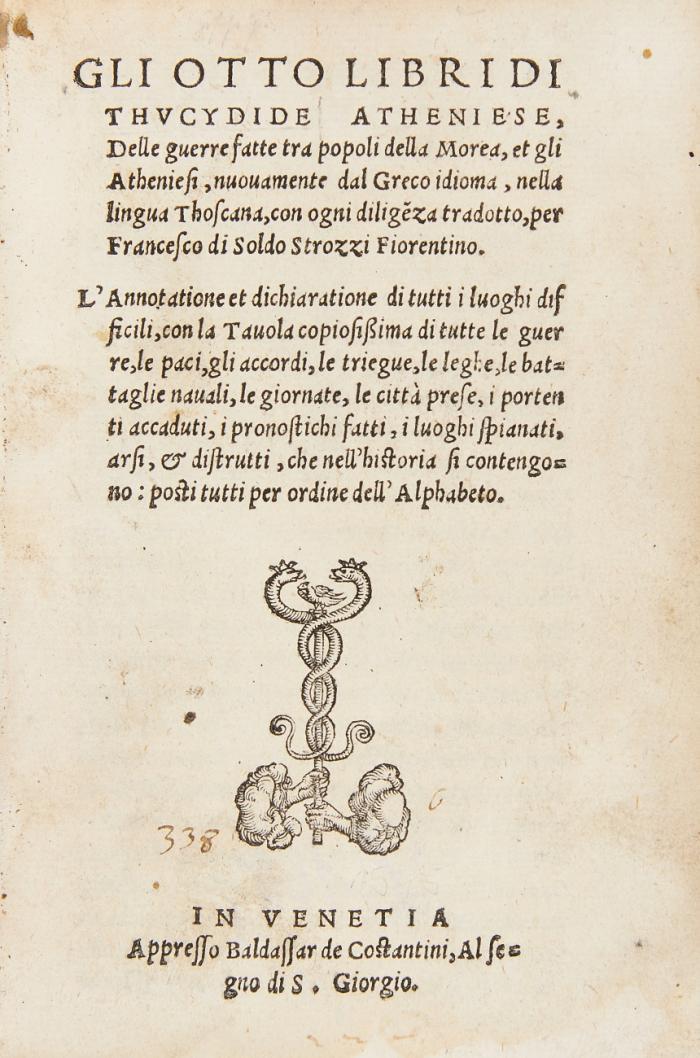 GLI OTTO LIBRI DI
THVCYDIDE ATHENIESE,
Delle guerre fatte tra popoli della Morea, et gli
Atheniesi, nuouamente dal Greco idioma, nella
lingua Thoscana, con ogni diligẽza tradotto, per
Francesco di Soldo Strozzi Fiorentino.
L'Annotatione et dichiaratione di tutti i luoghi dif
ficili, con la Tauola copiosißima di tutte le guer
re, le paci, gli accordi, le triegue, le leghe, le bat=
taglie nauali, le giornate, le città prese, i porten
ti accaduti, i pronostichi fatti, i luoghi spianati,
arsi, & distrutti, che nell'historia si contengo=
no: posti tutti per ordine dell'Alphabeto.
338
6
IN VENETIA
Appresso Baldassar de Costantini, Al se=
gno di S. Giorgio.